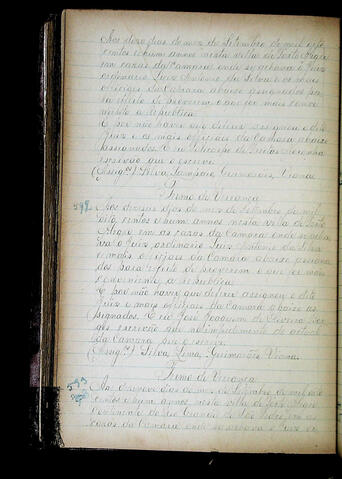 Aos doze dias do mez de Setembro de mil oito
centos e hum annos nesta villa de Porto Alegre
em cazas da Camara onde se achava o Juiz
ordinario Luiz Antonio da Silva e os mais
officiaes da Camara abaixo assignados pa
ra effeito de proverem o que for mais conve
niente a Republica.
E por não haver que deferir assignou o dito
Juiz e os mais officiaes da Camara abaixo
assignados. E eu
escrivão que o escrevi.
(Assig.) Silva, Sampaio, Guimarães, Vianna.
Termo de Vereança
592 Aos dezaseis dias do mez de Setembro de mil
oito centos e hum annos nesta villa de Porto
Alegre em as cazas da Camara onde se acha
va o Juiz ordinario Luiz Antonio da Silva
e mais officiaes da Camara abaixo assigna
dos para effeito de proverem o que for mais
conveniente a republica.
E por não haver que deferir assignou o dito
Juiz e mais officiaes da Camara abaixo as
signados. E eu José Joaquim de Oliveira
escrivão que no impedimento do actual
da Camara que o escrevi.
(Assig.) Silva, Lima, Guimarães, Vianna.
Termo de Vereança
593 Aos dezanove dias do mez de Setembro de mil oito
centos e hum annos nesta villa de Porto Alegre
Continente do Rio Grande de São Pedro em as
cazas da Camara onde se achava o Juiz or